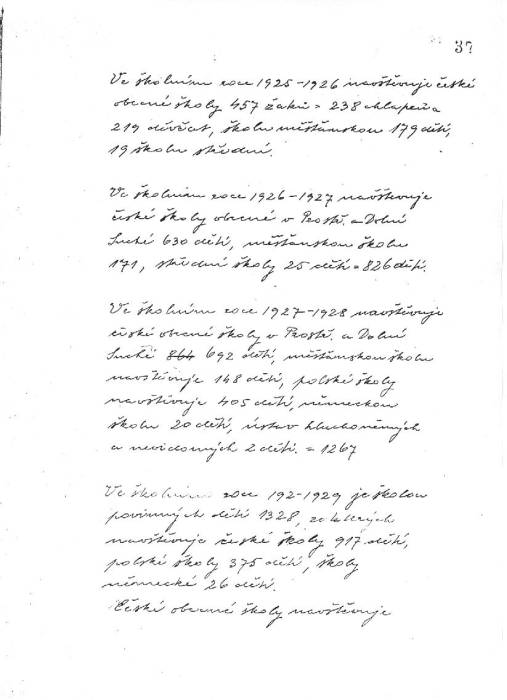 37
Ve školním roce 1925-1926 navštěvuje české
obecné školy 457 žáků = 238 chlapců a
219 děvčat, školu měšťanskou 179 dětí,
19 školu střední.
Ve školním roce 1926-1927 navštěvuje
české školy obecné v Prostř. a Dolní
Suché 630 dětí, měšťanskou školu
171, střední školy 25 dětí = 826 dětí.
Ve školním roce 1927-1928 navštěvuje
české obecné školy v Prostř. a Dolní
Suché 864 692 dětí, měšťanskou školu
navštěvuje 148 dětí, polské školy
navštěvuje 405 dětí, německou
školu 20 dětí, ústav hluchoněmých
a nevidomých 2 děti. = 1267
Ve školním roce 192-1929 je školou
povinných dětí 1328, ze kterých
navštěvuje české školy 917 dětí,
polské školy 375 dětí, školy
německé 26 dětí.
České obecné školy navštěvuje